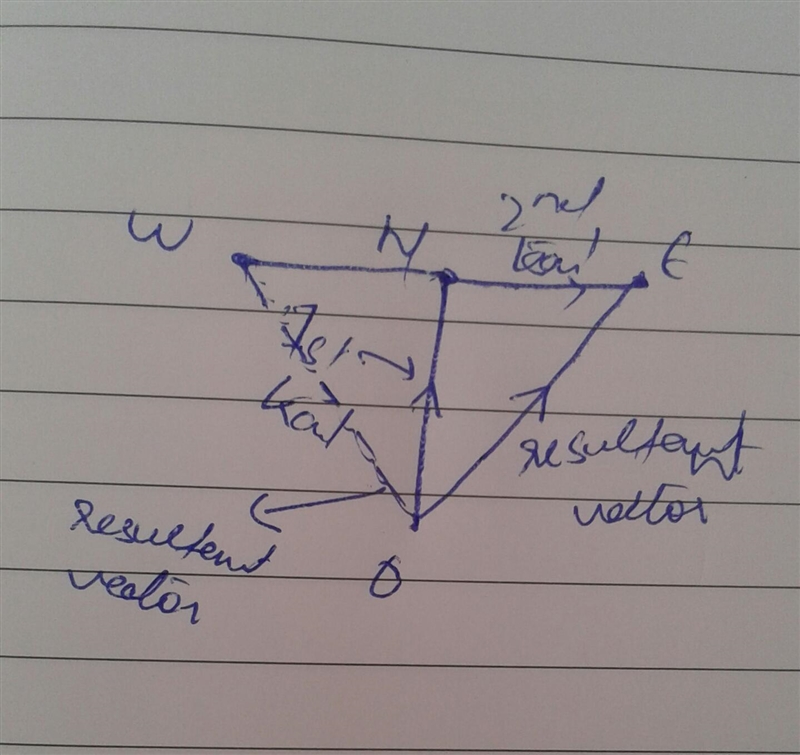 W
N
2nd
E
1st
resultant
vector
resultant
vector
O